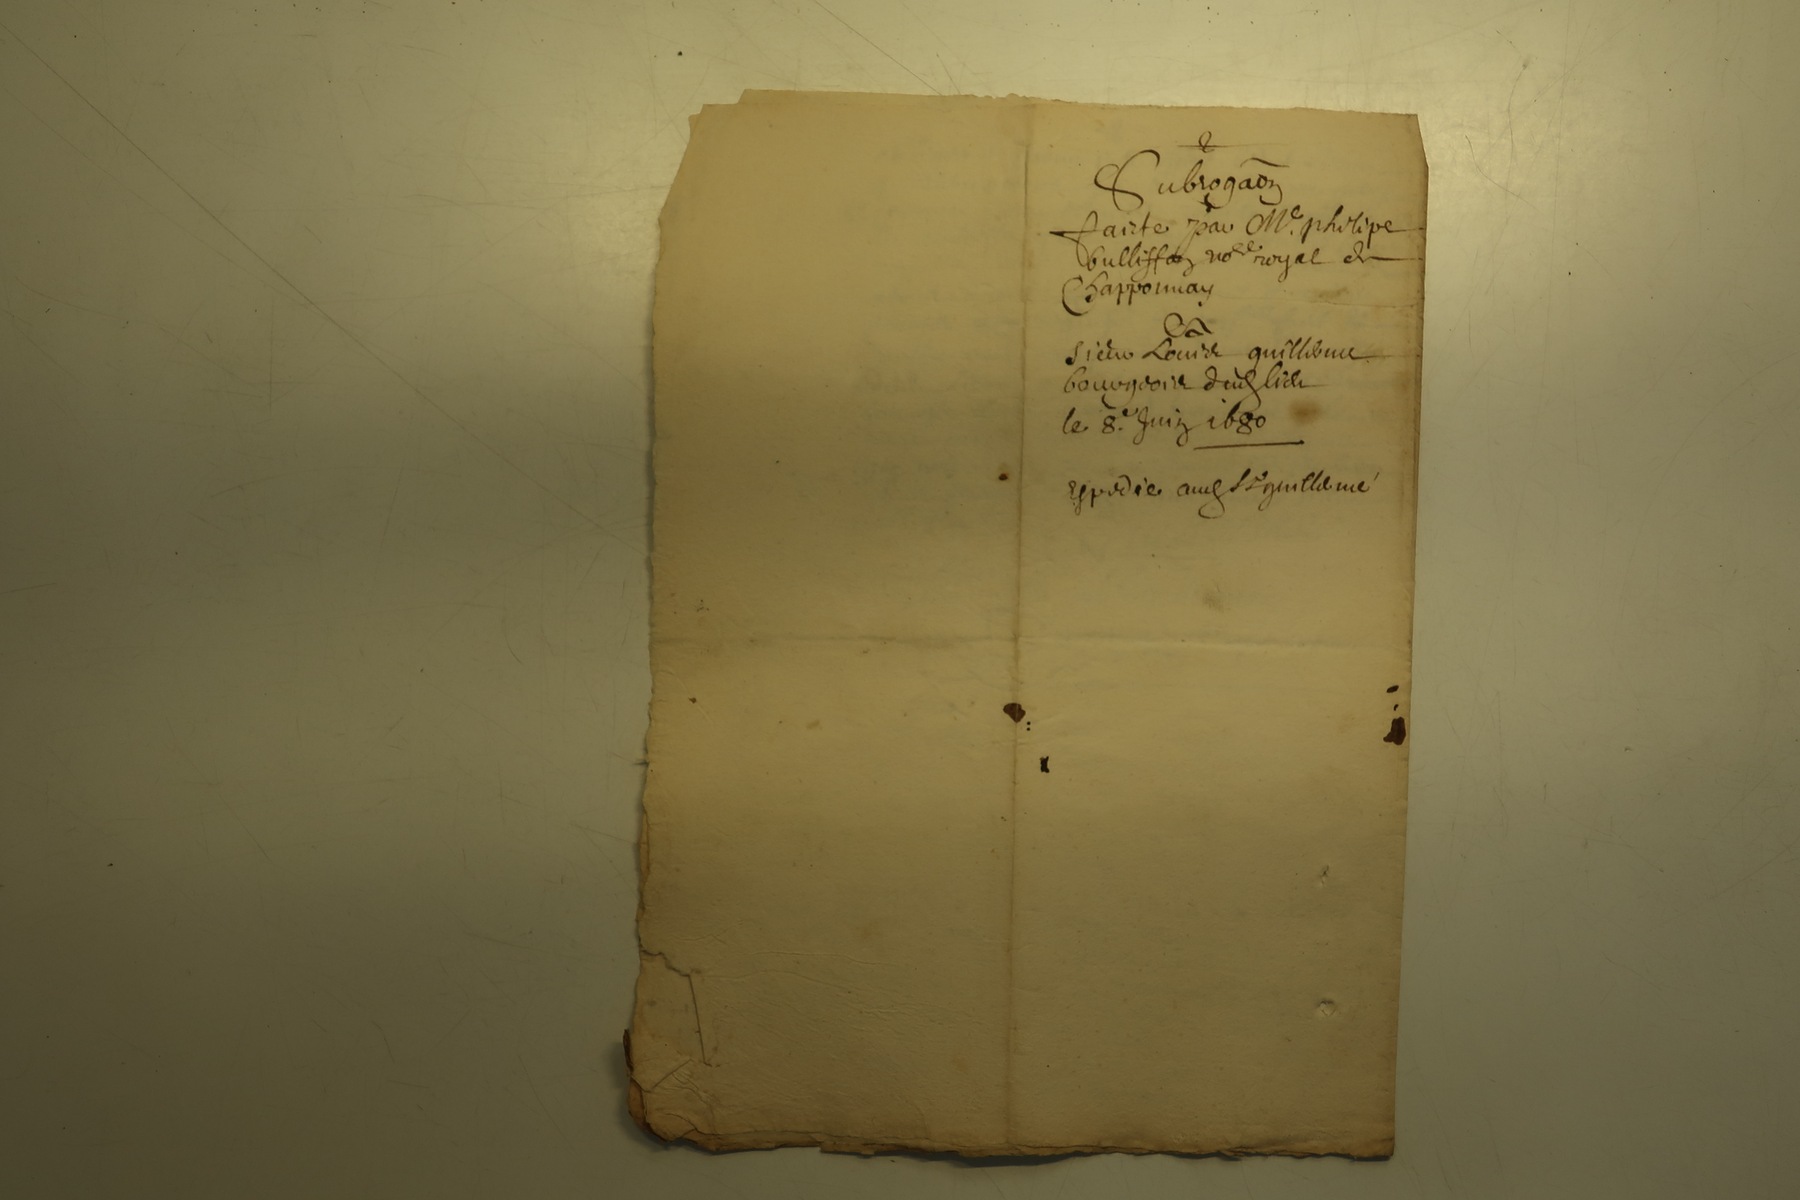 2
Subrogaõn
faicte par Me. philipe
bullisson nore royal de
Chapponnay
A
sieur Louis guilleme
bourgeois dud lieu
le 8.e Juin 1680
Expedie aud Sr guilleme